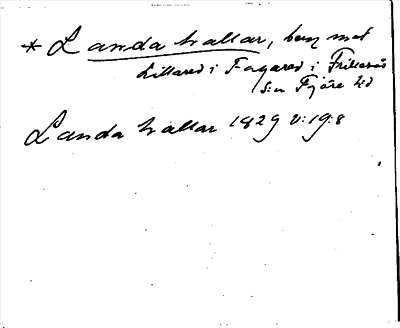 * Landa hallar, berg mot
Lillared i Fagared i Frillesås
s:n Fjäre hd
Landa hallar 1829 V:19:8